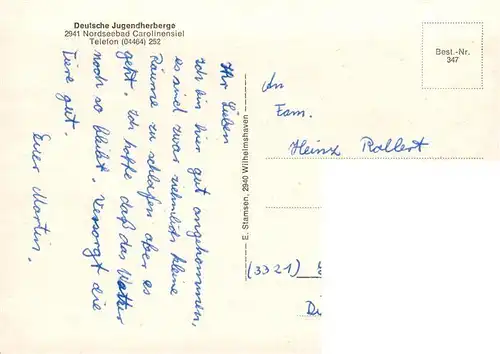 Deutsche Jugendherberge
2941 Nordseebad Carolinensiel
Telefon (04464) 252
Ihr Lieben
ich bin hier gut angekommen,
es sind zwar ziehmlich kleine
Räume zu schlafen aber es
geht. Ich hoffe daß das Wetter
noch so bleibt. Versorgt die
Tiere gut.
Euer Martin.
E. Stamsen, 2940 Wilhelmshaven
Best.-Nr.
347
An
Fam.
Heinz Rollert
(3321)